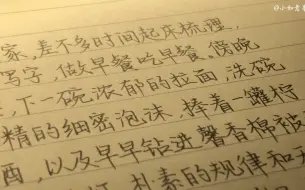 @小如意
家,差不多时间起床梳理,
写字,做早餐吃早餐,傍晚
,下一碗浓郁的拉面,洗碗
精的细密泡沫,捧着一罐柠
酉,以及早早钻进馨香棉被
朴素的规律和